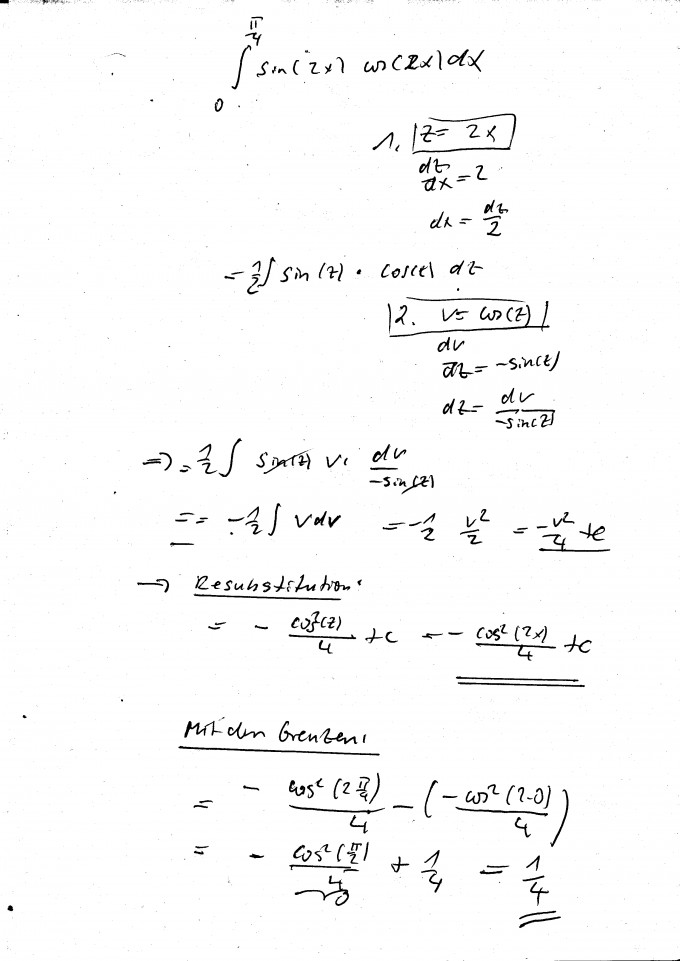 ∫₀^(π/4) sin(2x) cos(2x) dx
1. z = 2x
dz/dx = 2
dx = dz/2
= 1/2 ∫ sin(z) · cos(z) dz
2. v = cos(z)
dv/dz = -sin(z)
dz = dv/-sin(z)
=> = 1/2 ∫ sin(z) v · dv/-sin(z)
= = -1/2 ∫ v dv = -1/2 v²/2 = -v²/4 + c
→ Resubstitution:
= - cos²(z)/4 + c = - cos²(2x)/4 + c
Mit den Grenzen:
= - cos²(2 π/4)/4 - (- cos²(2·0)/4)
= - cos²(π/2)/4 + 1/4 = 1/4
0